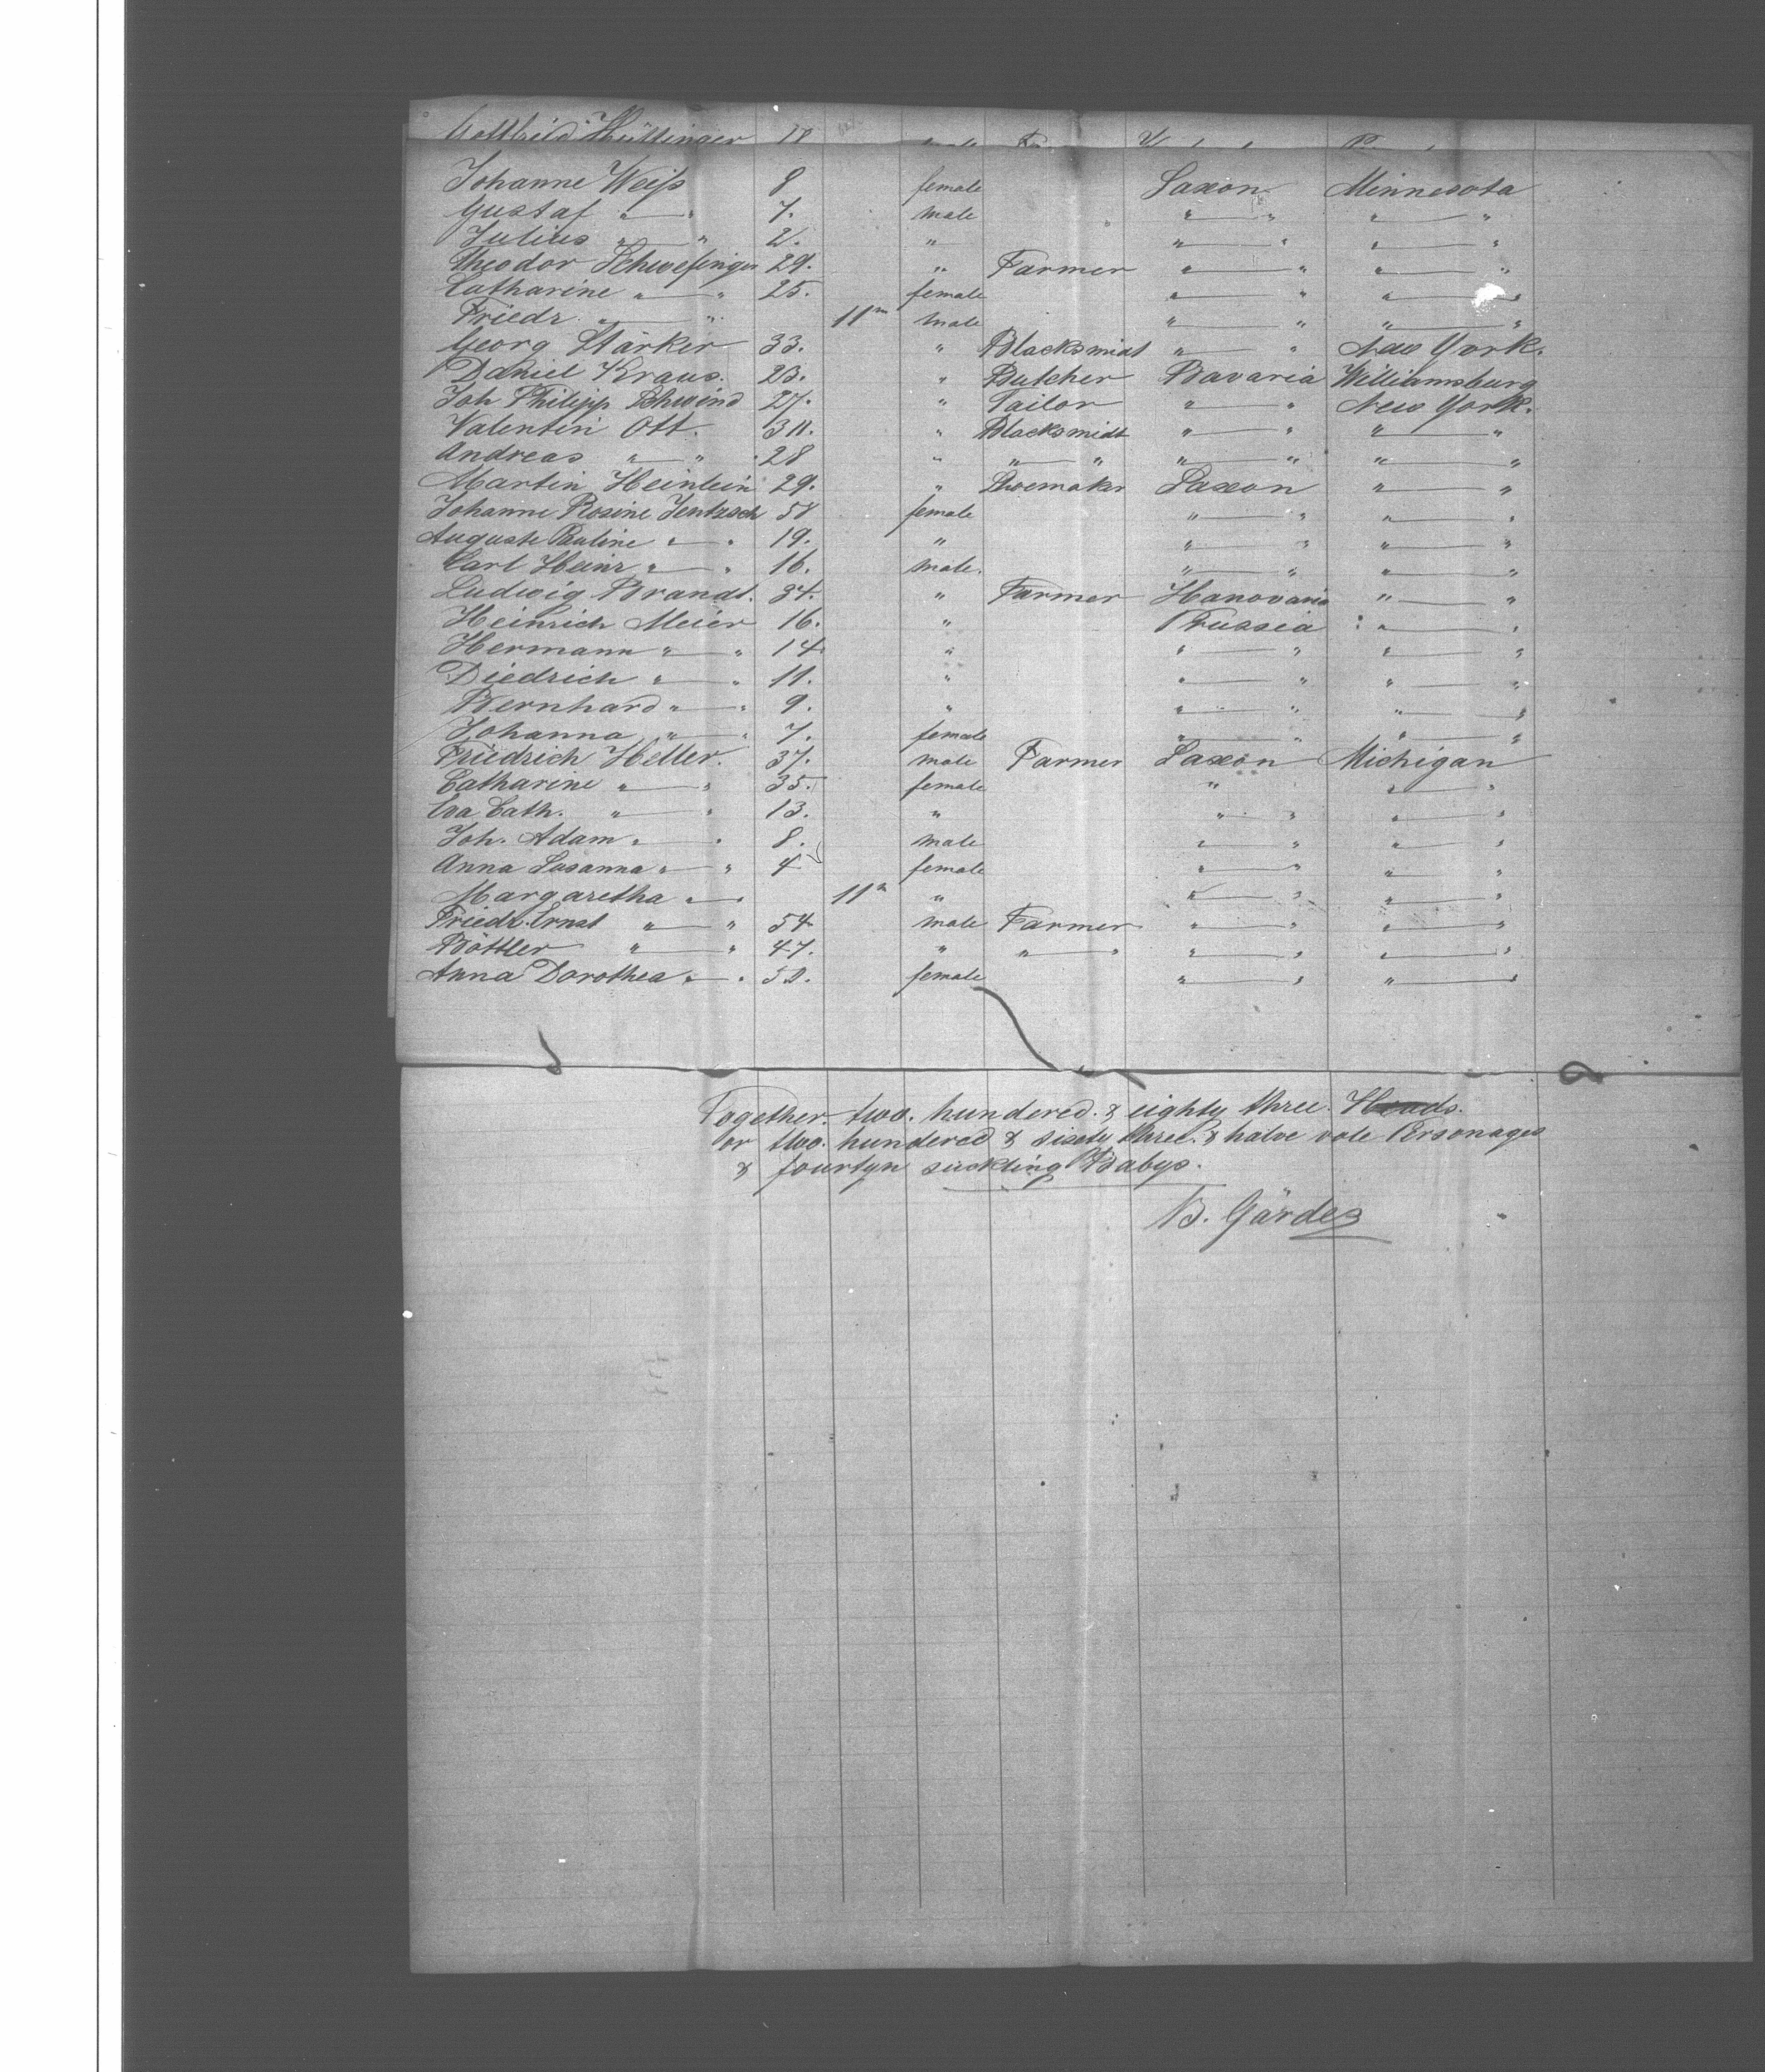 Gottfried Hüttinger 18
Johanne Weiß 8 female Saxon Minnesota
Gustaf " — " 7. male " — " " — "
Julius " — " 2. " " — " " — "
Theodor Schwefinger 29. " Farmer " — " " — "
Catharine " — " 25. female " — " " — "
Friedr. " — " 11m male " — " " — "
Georg Stärker 33. " Blacksmidt " — " New York.
Daniel Kraus. 23. " Butcher Bavaria Williamsburg
Joh Philipp Schwind 27. " Tailor " — " New York.
Valentin Ott. 30. " Blacksmidt " — " " — "
Andreas " — " 28 " " — " " — " " — "
Martin Heinlein 29. " Shoemaker Saxon " — "
Johanne Rosine Jentzsch 58 female " — " " — "
Auguste Pauline " — " 19. " " — " " — "
Carl Heinr " — " 16. male. " — " " — "
Ludwig Brandt. 34. " Farmer Hanovaria " — "
Heinrich Meier 16. " Prussia " — "
Hermann " — " 14 " " — " " — "
Diedrich " — " 11. " " — " " — "
Bernhard " — " 9. " " — " " — "
Johanna " — " 7. female " — " " — "
Friedrich Heller. 37. male Farmer Saxon Michigan
Catharine " — " 35. female " " — "
Eva Cath. " — " 13. " " " " — "
Joh. Adam " — " 8. male " " " — "
Anna Susanna " — " 4 female " — " " — "
Margaretha " — " 11m " " — " " — "
Friedr. Ernst " — " 54 male Farmer " — " " — "
Böttler " — " 47. " " — " " — " " — "
Anna Dorothea " — " 50. female " — " " — "
Together two. hundered. & eighty three. Heads.
or two. hundered & sixety three. & halve vole Personages
& fourtyn suckling Babys.
B. Gärdes